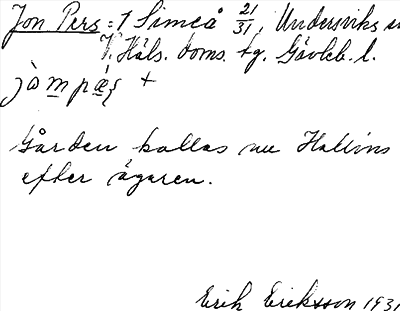 Jon Pers: 1 Simeå 21/31, Undersviks
V. Häls. doms. tg. Gävleb. l.
+
Gården kallas nu Hallins
efter ägaren.
Erik Eriksson 1931